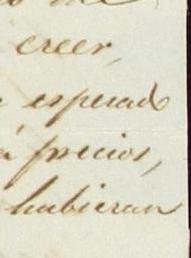 me
creer,
esperado
á precios,
hubieran